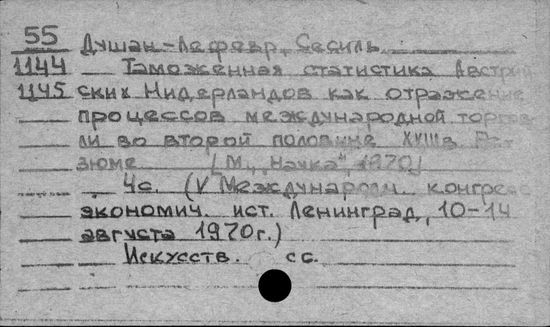 55 Душан-Лефевр, Сесиль
1144 Таможенная статистика Австрий
1145 ских Нидерландов как отражение
процессов международной торгов
ли во второй половине XVIIIв. Ре-
зюме [М., "Наука", 1970]
4с. (V Международн. конгресс
экономич. ист. Ленинград, 10-14
августа 1970г.)
Искусств. сс.